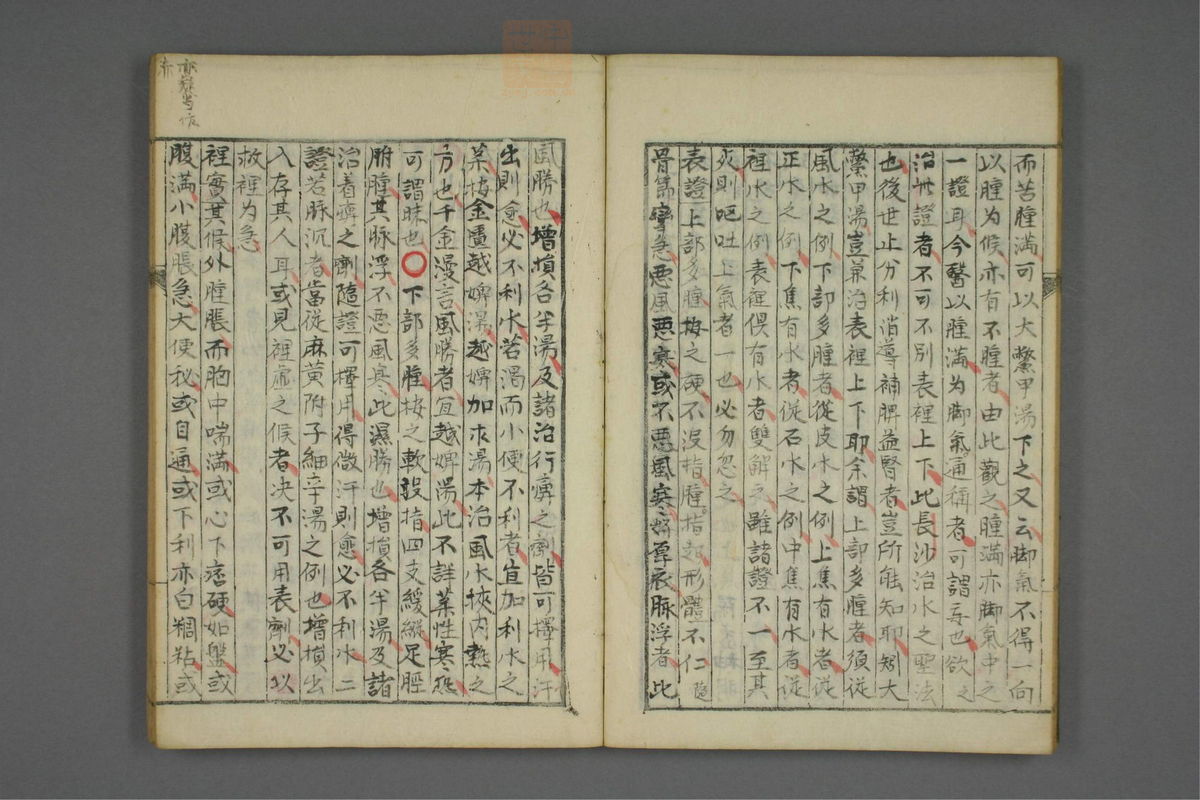 而苦腫滿可以大鱉甲湯下之又云脚氣不得一向
以腫为候亦有不腫者由此觀之腫滿亦脚氣中之
一證耳今醫以腫滿为脚氣通稱者可謂妄也欲之
治此證者不可不別表裡上下此長沙治水之聖法
也後世止分利消導補脾益腎者豈所能知耶矧大
鱉甲湯豈兼治表裡上下耶余謂上部多腫者須従
風水之例下部多腫者從皮水之例上焦有水者從
正水之例下焦有水者從石水之例中焦有水者從
裡水之例表裡倶有水者雙解之雖諸證不一至其
則嘔吐上氣者一也必勿忽之
表證上部多腫按之硬不没指腫指起形體不仁隨
骨節攣急悪風悪寒或不悪風寒擠厚衣脉浮者此
風勝也增損各半湯及諸治行痹之劑皆可擇用汗
出則愈必不利水若渇而小便不利者宜加利水之
菜按金匱越婢湯越婢加朮湯本治風水挾内熱之
方也千金漫言風勝者宜越婢湯此不詳菜性寒恐
可謂昧也〇下部多腫按之軟没指四支緩縱足脛
腑腫其脉浮不悪風寒此濕勝也增損各半湯及諸
治着痹之劑隨證可擇用得微汗則愈必不利水二
證若脉沉者當從麻黄附子細辛湯之例也增損出
入存其人耳或見裡虛之候者决不可用表劑必以
救裡为急
裡實其候外腫脹而胸中喘滿或心下痞硬如盤或
腹滿小腹脹急大便秘或自通或下利亦白稠粘或
亦疑当作
赤